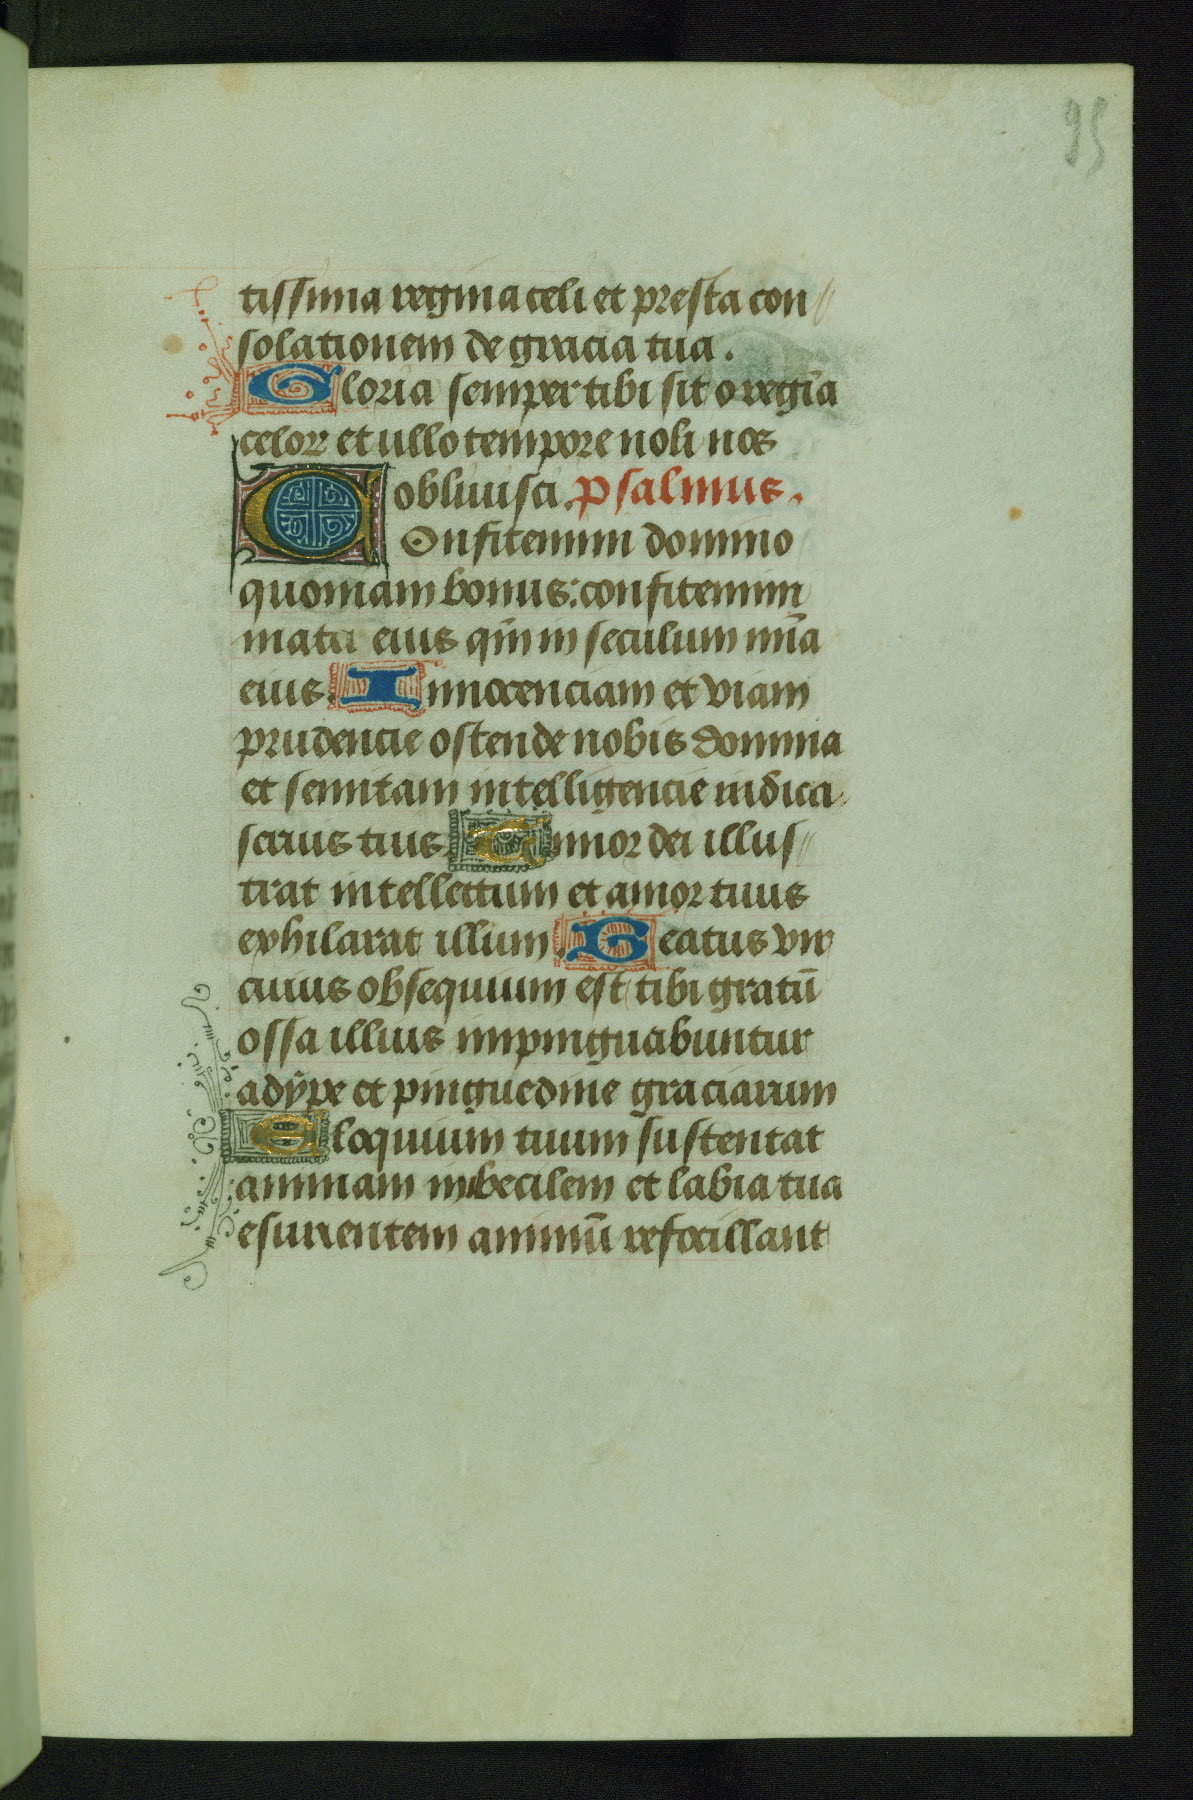 95
tissima regina celi et presta con
solationem de gracia tua.
Gloria semper tibi sit o regīa
celoꝝ et ullo tempore noli nos
oblivisci. Psalmus.
Confitemini domino
quoniam bonus: confitemini
mat eius qm̄ in seculum mīa
eius. Innocenciam et viam
prudencie ostende nobis domina
et semitam intelligencie indica
servis tuis. Timor dei illus
trat intellectum et amor tuus
exhilarat illum. Beatus vir
cuius obsequium est tibi gratū
ossa illius impinguabuntur
adype et pinguedine graciarum
Eloquium tuum sustentat
animam imbecilem et labia tua
esurientem animū refocillant